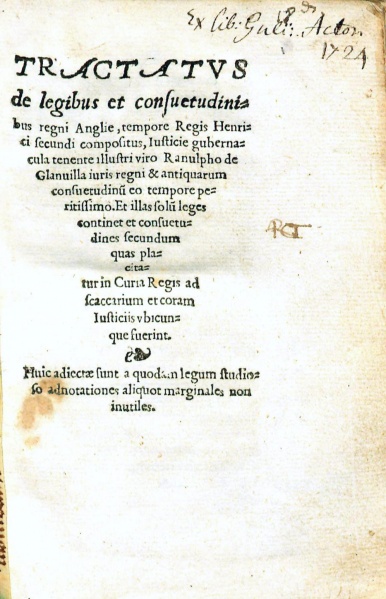 Ex lib: Guli: Acton
1724
TRACTATVS
de legibus et consuetudini=
bus regni Anglie, tempore Regis Henri=
ci secundi compositus, Iusticie guberna=
cula tenente illustri viro Ranulpho de
Glanuilla iuris regni & antiquarum
consuetudinũ eo tempore pe=
ritissimo. Et illas solũ leges
continet et consuetu=
dines secundum
quas pla=
cita=
tur in Curia Regis ad
scaccarium et coram
Iusticiis vbicun=
que fuerint.
Huic adiectæ sunt a quodam legum studio=
so adnotationes aliquot marginales non
inutiles.